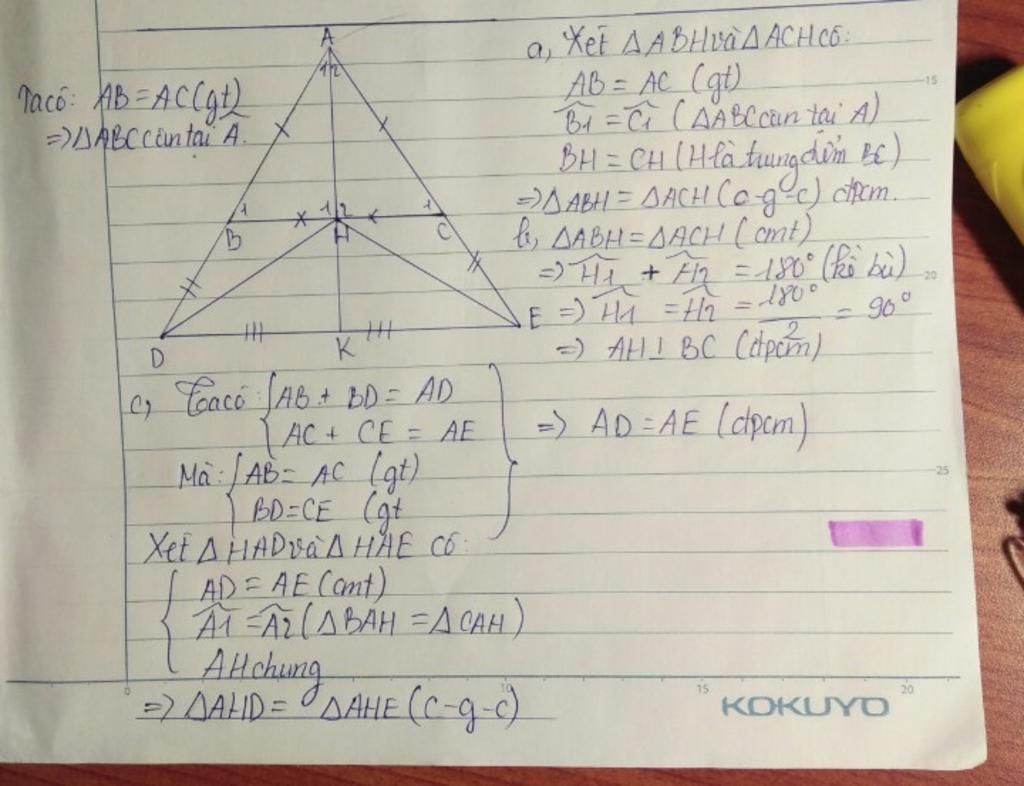 A
12
Ta có: AB = AC (gt)
=> ΔABC cân tại Â.
1
1 2
1
B
H
C
D
K
E
a, Xét ΔABH và ΔACH có:
AB = AC (gt)
B̂1 = Ĉ1 (ΔABC cân tại A)
BH = CH (H là trung điểm BC)
=> ΔABH = ΔACH (c-g-c) đpcm.
b, ΔABH = ΔACH (cmt)
=> Ĥ1 + Ĥ2 = 180° (kề bù)
=> Ĥ1 = Ĥ2 = 180°/2 = 90°
=> AH ⊥ BC (đpcm)
c, Ta có: { AB + BD = AD
AC + CE = AE
Mà: { AB = AC (gt)
BD = CE (gt
} => AD = AE (đpcm)
Xét ΔHAD và ΔHAE có:
{ AD = AE (cmt)
Â1 = Â2 (ΔBAH = ΔCAH)
AH chung
=> ΔAHD = ΔAHE (c-g-c)
15
20
25
0
10
15
20
KOKUYO